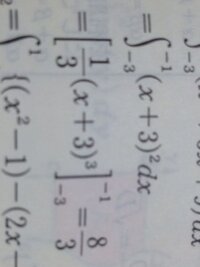 =∫_{-3}^{-1}(x+3)^2dx
=[1/3(x+3)^3]_{-3}^{-1}=8/3
=∫^1{(x^2-1)-(2x-